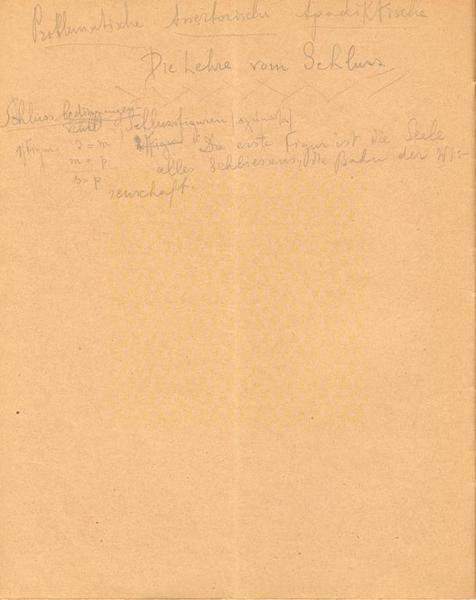 Problematische Assertorische Apodiktische
Die Lehre vom Schluss
Schluss bedingungen- Schlussfiguren
1/Figur s = m 2/Figur Die erste Figur ist die Seele
m = p alles Schliessens, die Bahn der Wis-
s = p senschaft.